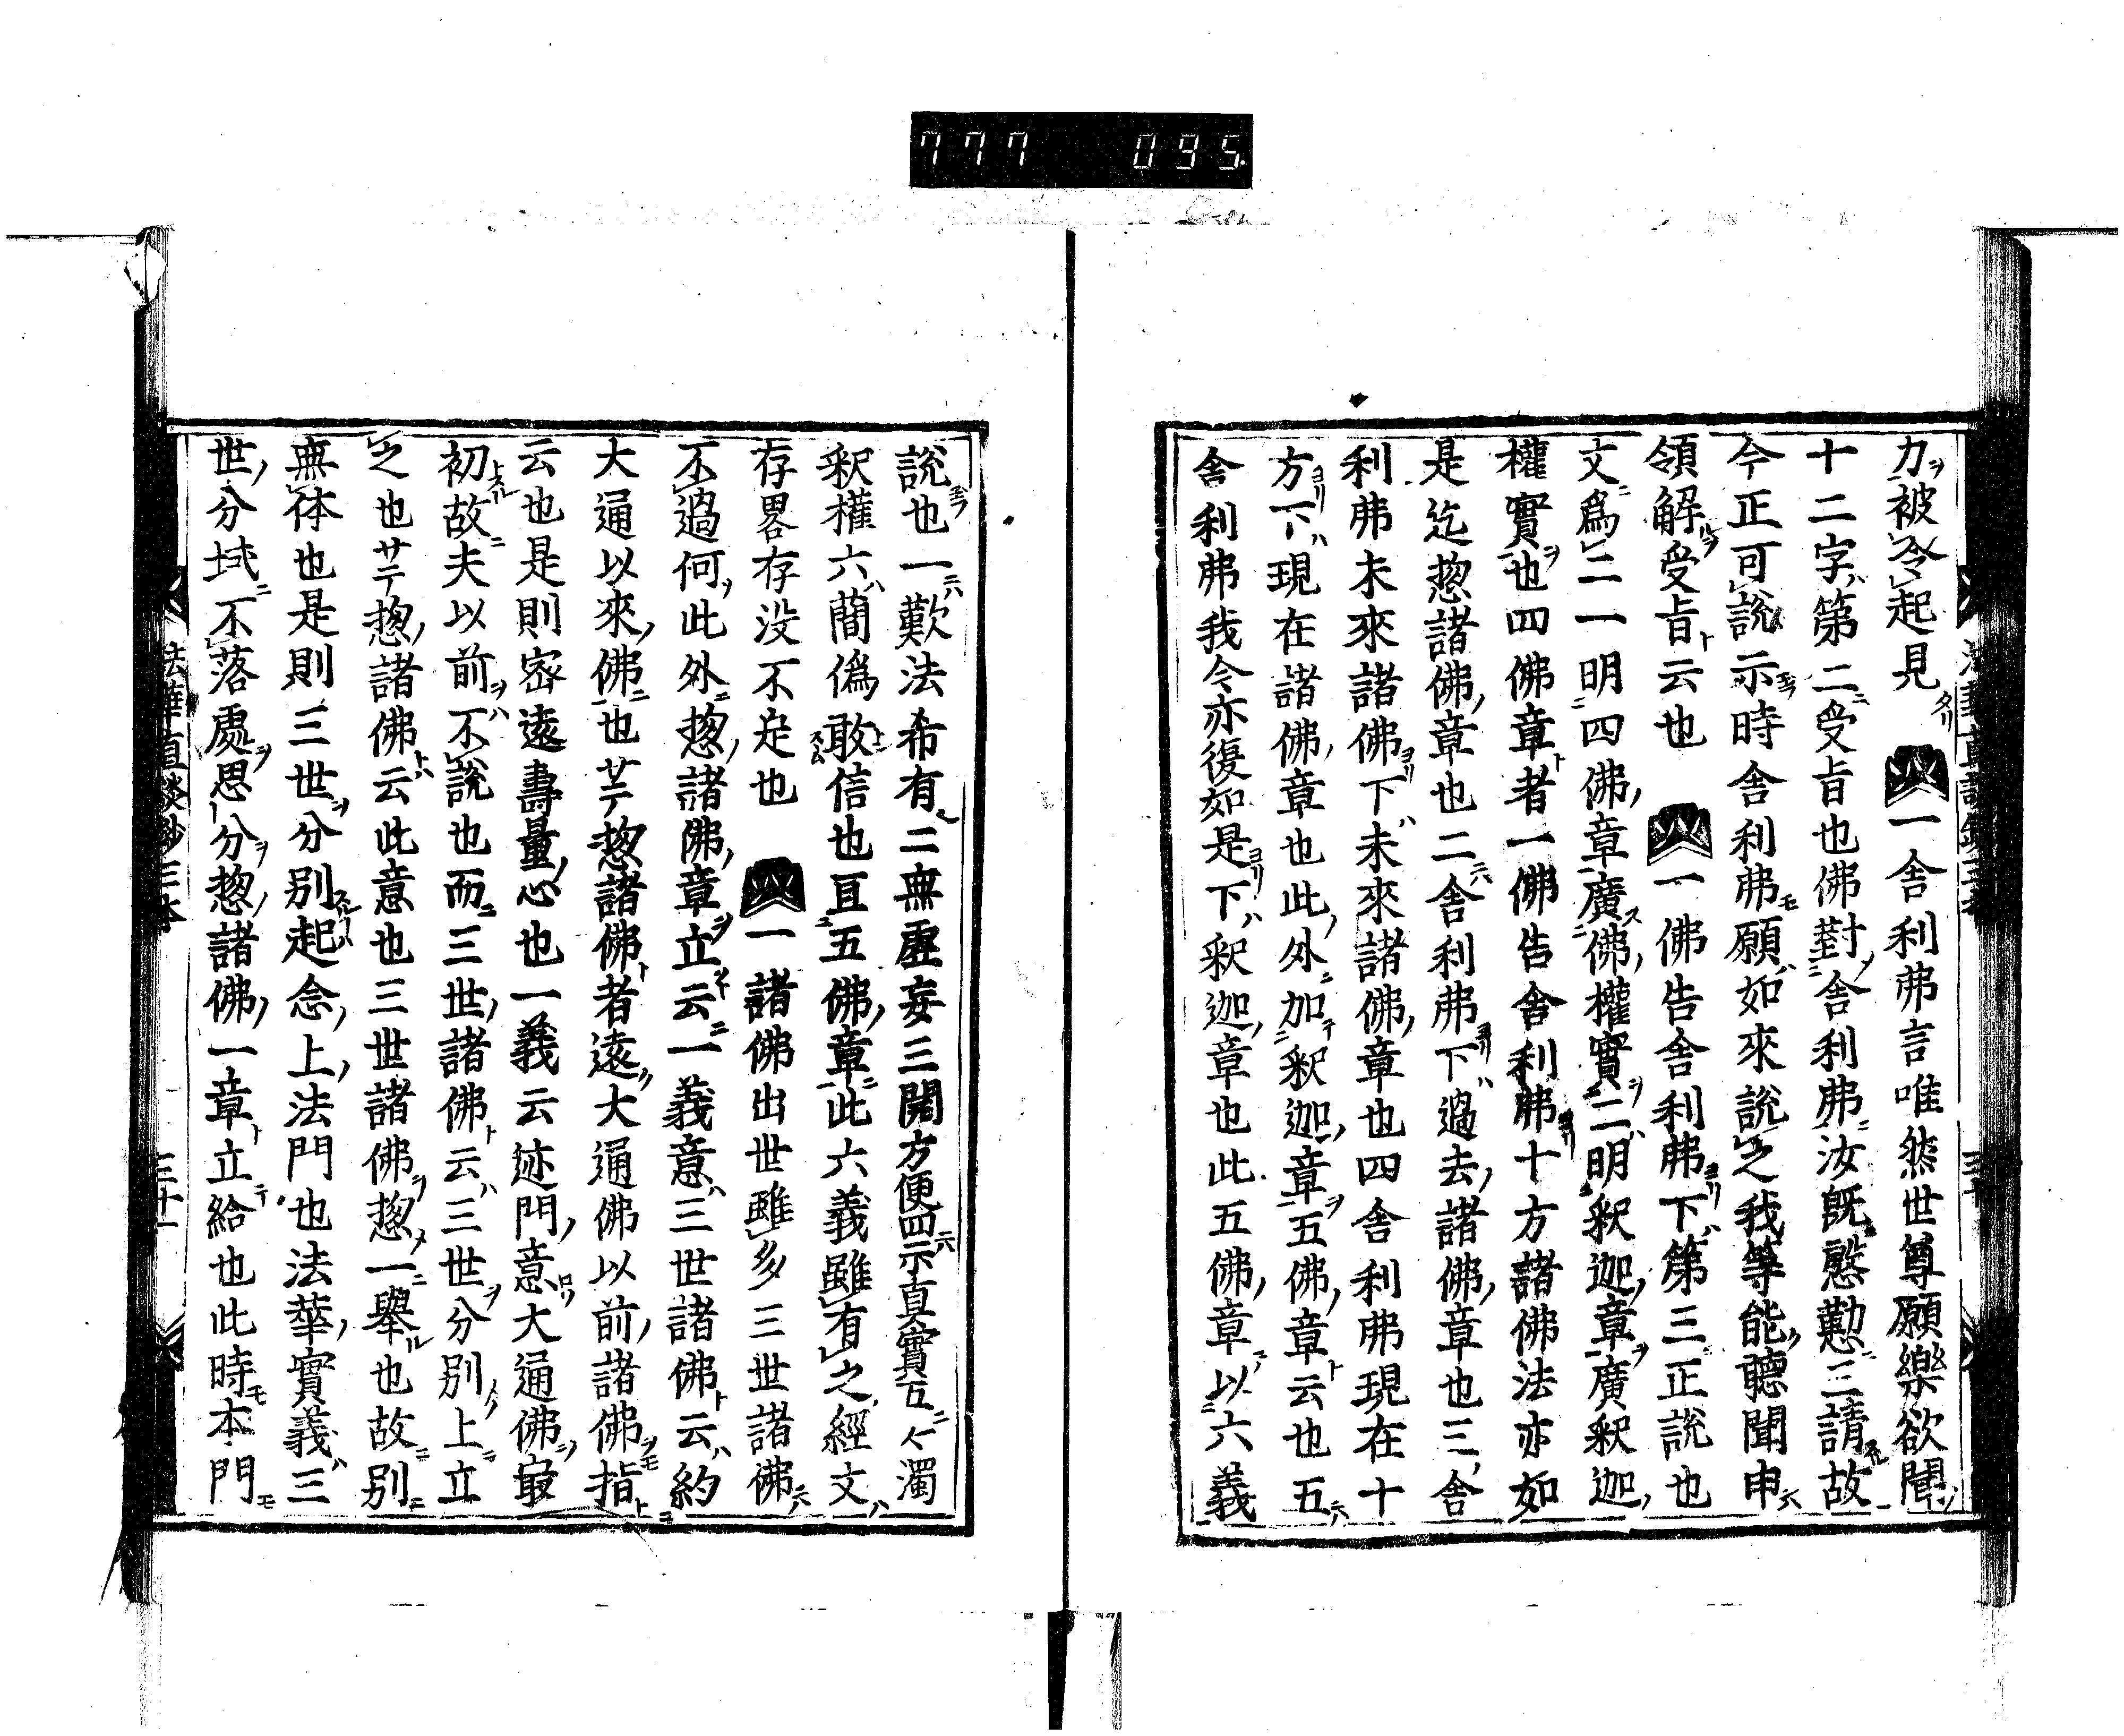 777 095
力被令起見 一舎利弗言唯然世尊願樂欲聞
十二字第二受旨也佛對舎利弗汝既慇懃三請故
今正可說示時舎利弗願如來說之我等能聽聞申
領解受旨云也 一佛告舎利弗下第三正說也
文爲二一明四佛章廣佛權實二明釈迦章廣釈迦
權實也四佛章者一佛告舎利弗十方諸佛法亦如
是迄惣諸佛章也二舎利弗下過去諸佛章也三舎
利弗未來諸佛下未來諸佛章也四舎利弗現在十
方下現在諸佛章也此外加釈迦章五佛章云也五
舎利弗我今亦復如是下釈迦章也此五佛章以六義
說也一歎法希有二無虛妄三開方便四示真實五濁
釈權六蕳僞敢信也亘五佛章此六義雖有之經文
存畧存没不定也 一諸佛出世雖多三世諸佛
不過何此外惣諸佛章立云一義意三世諸佛云約
大通以來佛也サテ惣諸佛者遠大通佛以前諸佛指
云也是則密遠壽量心也一義云迹門意大通佛最
初故夫以前不說也而三世諸佛云三世分別上立
之也サテ惣諸佛云此意也三世諸佛惣一舉也故別
無体也是則三世分別起念上法門也法華實義三
世分域不落處思分惣諸佛一章立給也此時本門
法華直談鈔三本 三十一